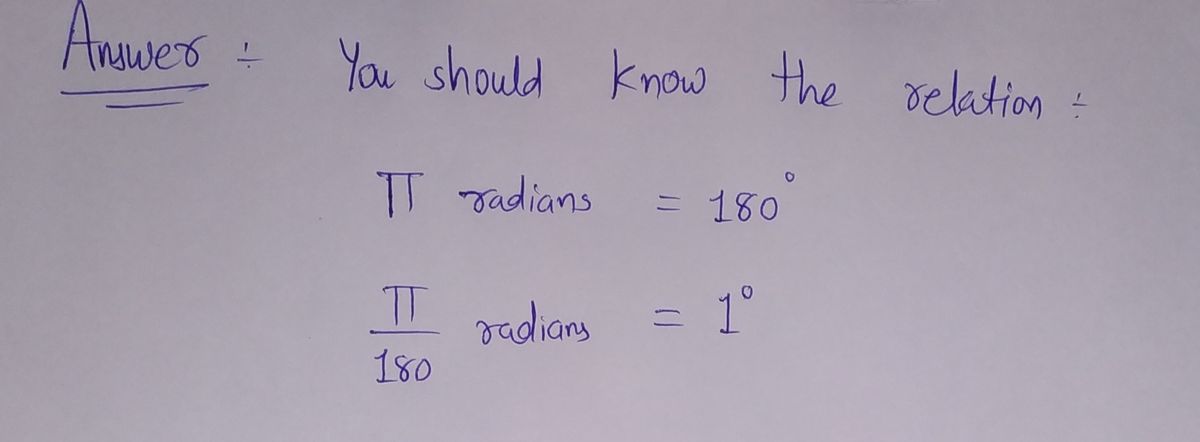 Answer :- You should know the relation :-
π radians = 180°
π/180 radians = 1°